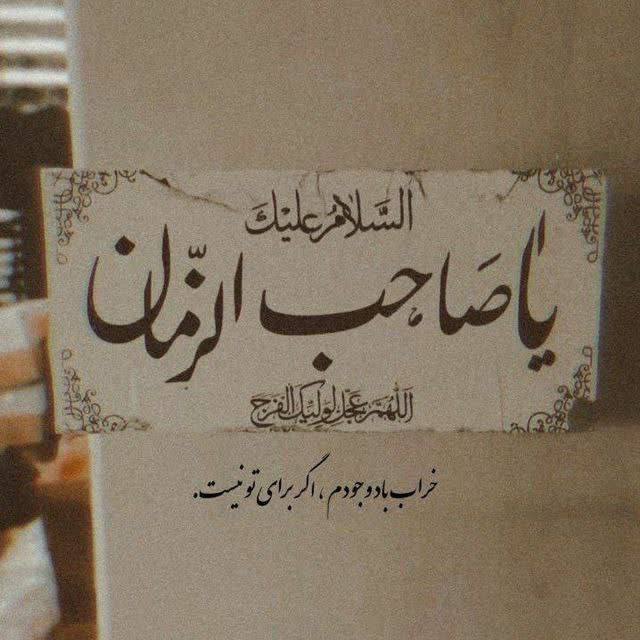 السَّلامُ عليْكَ
یاصَاحِب الزّمان
اللهُمَّ عَجِّل لِوَلِیِّکَ الْفَرَج
خراب باد وجودم ، اگر برای تو نیست.